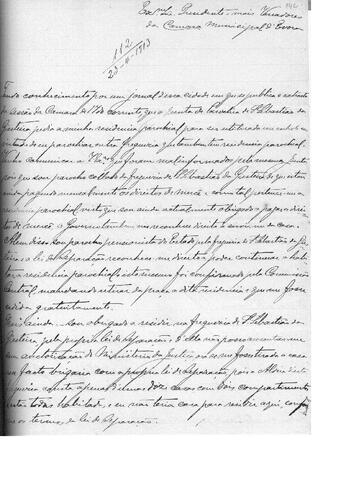 Exmo Snr Presidente e mais Vereadores
da Camara Municipal d'Evora
112
23-4-1913
Tendo conhecimento por um jornal dessa cidade em que se publica o extracto
da sessão da Camara de 17 do corrente, que a Junta de Parochia de S. Sebastião da
Giesteira pedia a minha residencia parochial para ser
parochiar outra freguezia que tambem tem residencia parochial.
Venho communicar a V. que foram mal informados pela mesma Junta
por que sou parocho collado da freguezia de S. Sebastião da Giesteira de que estou
ainda pagando mensalmente os direitos de mercê e como tal pertence-me a
residencia parochial visto que sou ainda actualmente obrigado a pagar o direi-
to de mercê, o Governo tambem me reconhece direito
Alem disso sou parocho pensionista do Estado pela freguezia de S. Sebastião da Gies-
teira e a lei de Separação reconhece-me direito a poder continuar a habi-
tar a residencia parochial e este mesmo foi confirmado pela Commissão
Central, mandando retirar da praça a dita residencia e que me fosse
cedida gratuitamente.
Mais ainda: sou obrigado a residir na freguezia de S. Sebastião da
Giesteira pela propria lei de Separação; d'ella não posso ausentar-me
sem auctorisação do Ministerio da Justiça
de facto brigaria com a propria lei de Separação, pois a Aldeia desta
freguezia consta apenas de umas doze casas com dois compartimentos
estão todas habitadas, e eu não teria casa para residir aqui, confor-
me os termos da lei de Separação.